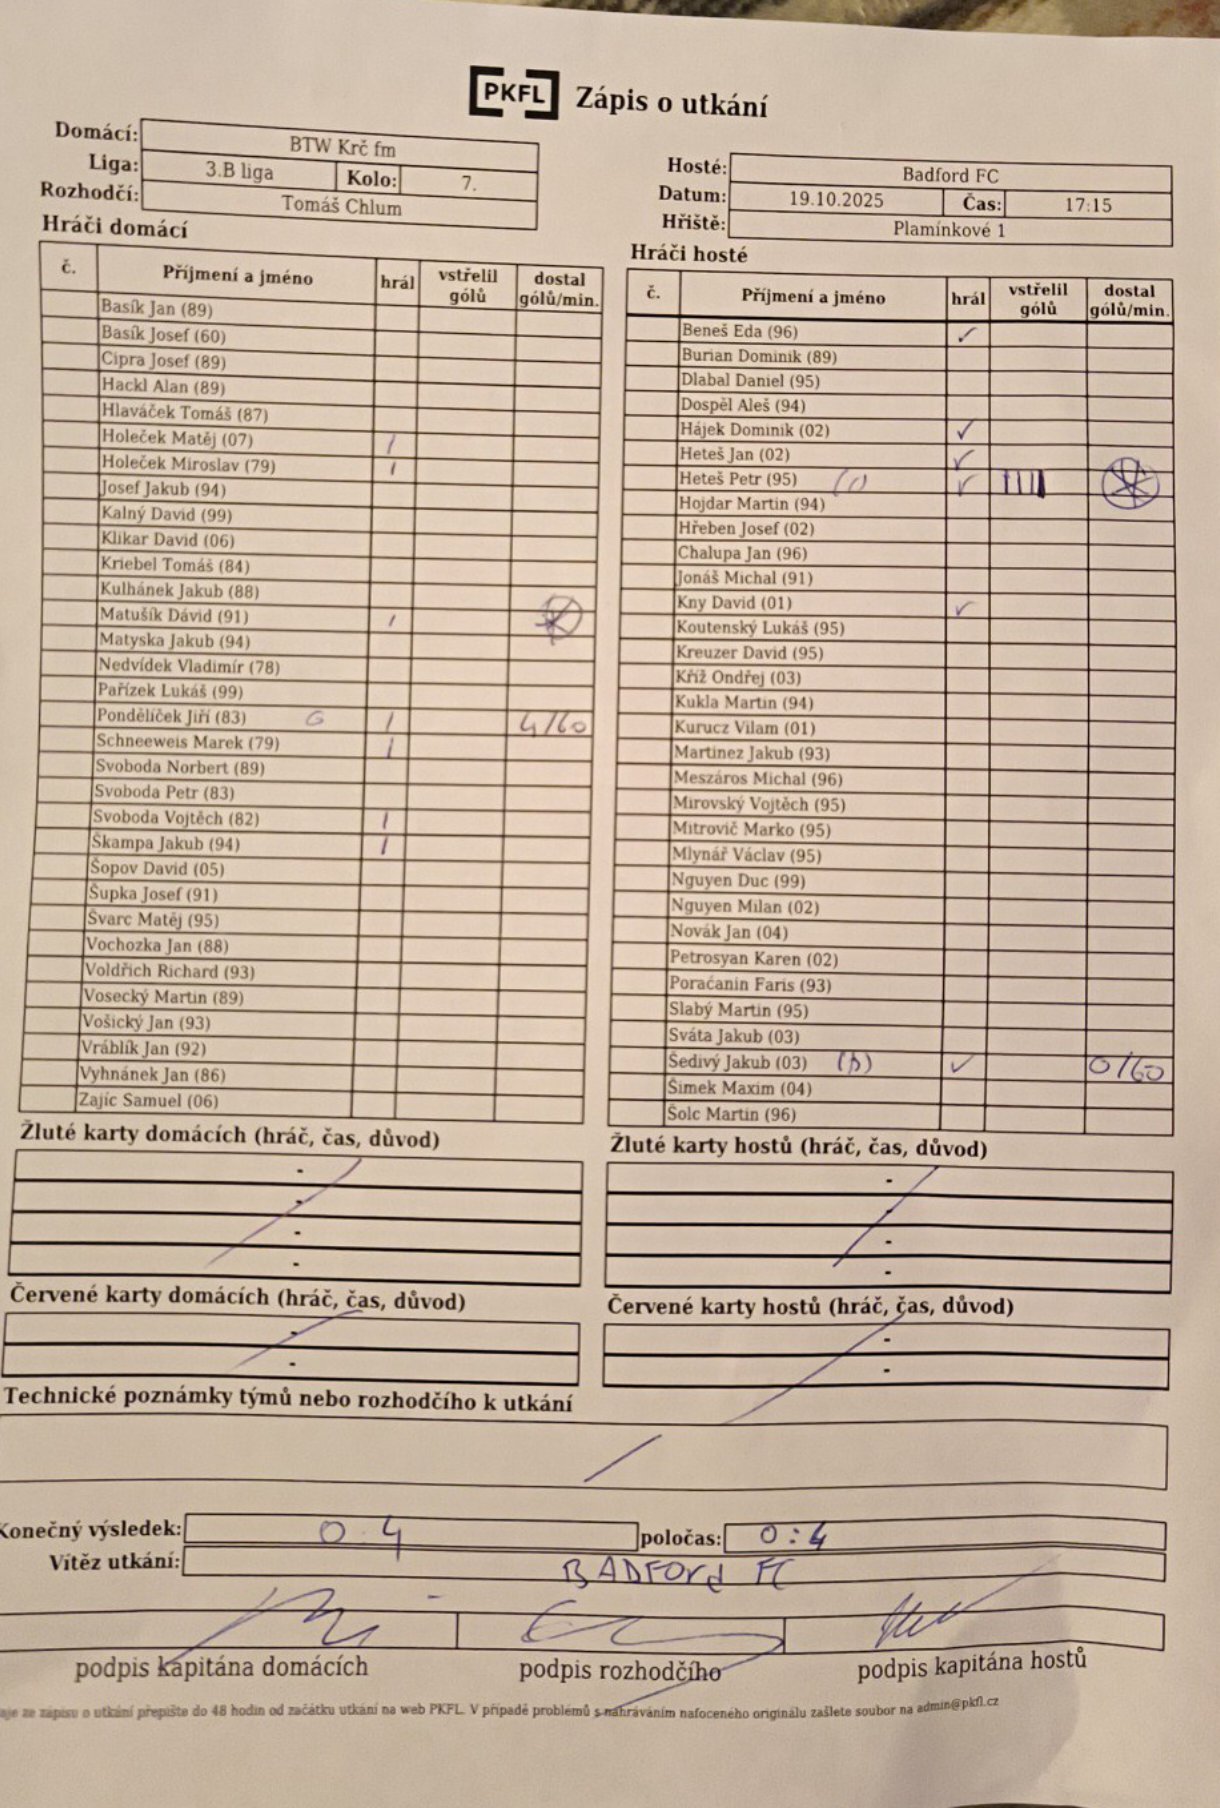 PKFL Zápis o utkání
Domácí: BTW Krč fm
Liga: 3.B liga Kolo: 7.
Rozhodčí: Tomáš Chlum
Hosté: Badford FC
Datum: 19.10.2025 Čas: 17:15
Hřiště: Plamínkové 1
Hráči domácí
č. Příjmení a jméno hrál vstřelil gólů dostal gólů/min.
Basík Jan (89)
Basík Josef (60)
Cipra Josef (89)
Hackl Alan (89)
Hlaváček Tomáš (87)
Holeček Matěj (07) /
Holeček Miroslav (79) /
Josef Jakub (94)
Kalný David (99)
Klikar David (06)
Kriebel Tomáš (84)
Kulhánek Jakub (88)
Matušík Dávid (91) /
Matyska Jakub (94)
Nedvídek Vladimír (78)
Pařízek Lukáš (99)
Pondělíček Jiří (83) G / 4/60
Schneeweis Marek (79) /
Svoboda Norbert (89)
Svoboda Petr (83)
Svoboda Vojtěch (82) /
Škampa Jakub (94) /
Šopov David (05)
Šupka Josef (91)
Švarc Matěj (95)
Vochozka Jan (88)
Voldřich Richard (93)
Vosecký Martin (89)
Vošický Jan (93)
Vráblík Jan (92)
Vyhnánek Jan (86)
Zajíc Samuel (06)
Hráči hosté
č. Příjmení a jméno hrál vstřelil gólů dostal gólů/min.
Beneš Eda (96) ✓
Burian Dominik (89)
Dlabal Daniel (95)
Dospěl Aleš (94)
Hájek Dominik (02) ✓
Heteš Jan (02) ✓
Heteš Petr (95) ✓ ||||
Hojdar Martin (94)
Hřeben Josef (02)
Chalupa Jan (96)
Jonáš Michal (91)
Kny David (01) ✓
Koutenský Lukáš (95)
Kreuzer David (95)
Kříž Ondřej (03)
Kukla Martin (94)
Kurucz Vilam (01)
Martinez Jakub (93)
Meszáros Michal (96)
Mirovský Vojtěch (95)
Mitrovič Marko (95)
Mlynář Václav (95)
Nguyen Duc (99)
Nguyen Milan (02)
Novák Jan (04)
Petrosyan Karen (02)
Poraćanin Faris (93)
Slabý Martin (95)
Sváta Jakub (03)
Šedivý Jakub (03) ✓ 0/60
Šimek Maxim (04)
Šolc Martin (96)
Žluté karty domácích (hráč, čas, důvod)
-
-
-
-
Žluté karty hostů (hráč, čas, důvod)
-
-
-
-
Červené karty domácích (hráč, čas, důvod)
-
-
Červené karty hostů (hráč, čas, důvod)
-
-
Technické poznámky týmů nebo rozhodčího k utkání
/
Konečný výsledek: 0:4 poločas: 0:4
Vítěz utkání: BADFOrd FC
podpis kapitána domácích podpis rozhodčího podpis kapitána hostů
ze zápisu o utkání přepište do 48 hodin od začátku utkání na web PKFL. V případě problémů s nahráváním nafoceného originálu zašlete soubor na admin@pkfl.cz